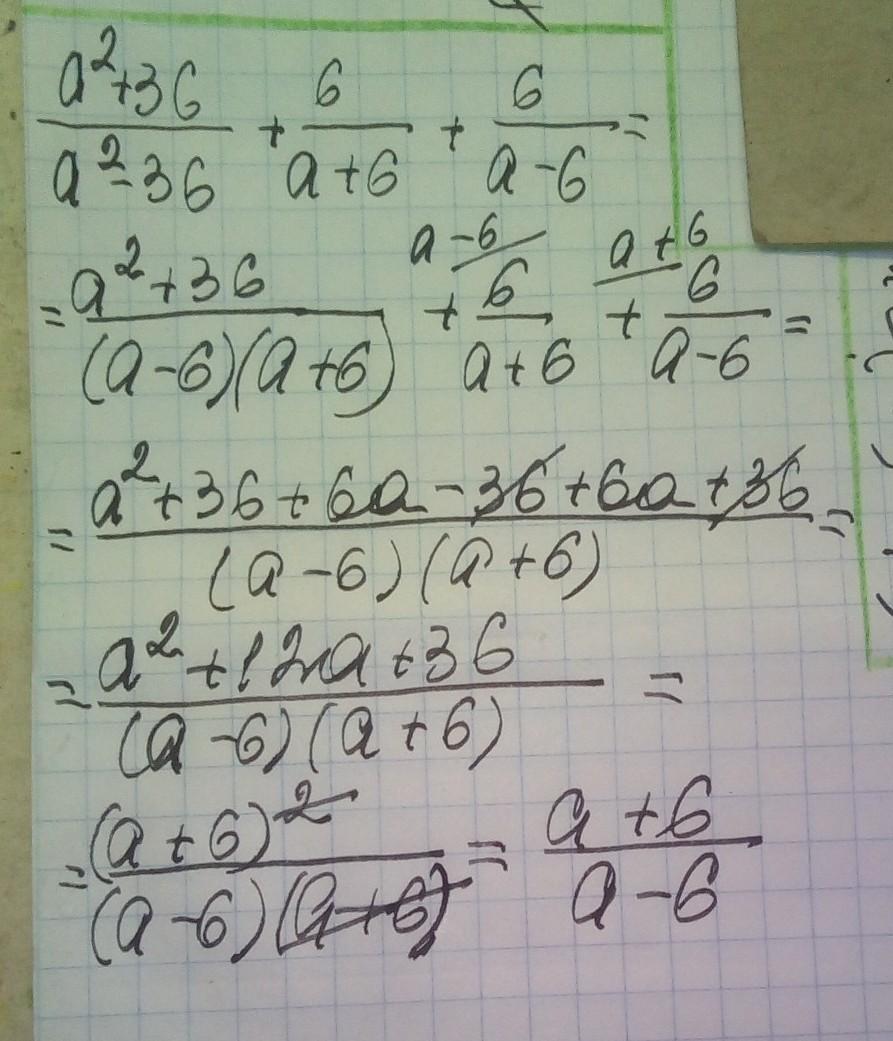 a²+36 / a²-36 + 6 / a+6 + 6 / a-6 =
= a²+36 / (a-6)(a+6) + a-6/ 6 / a+6 + a+6/ 6 / a-6 =
= a²+36+6a-36+6a+36 / (a-6)(a+6) =
= a²+12a+36 / (a-6)(a+6) =
= (a+6)² / (a-6)(a+6) = a+6 / a-6